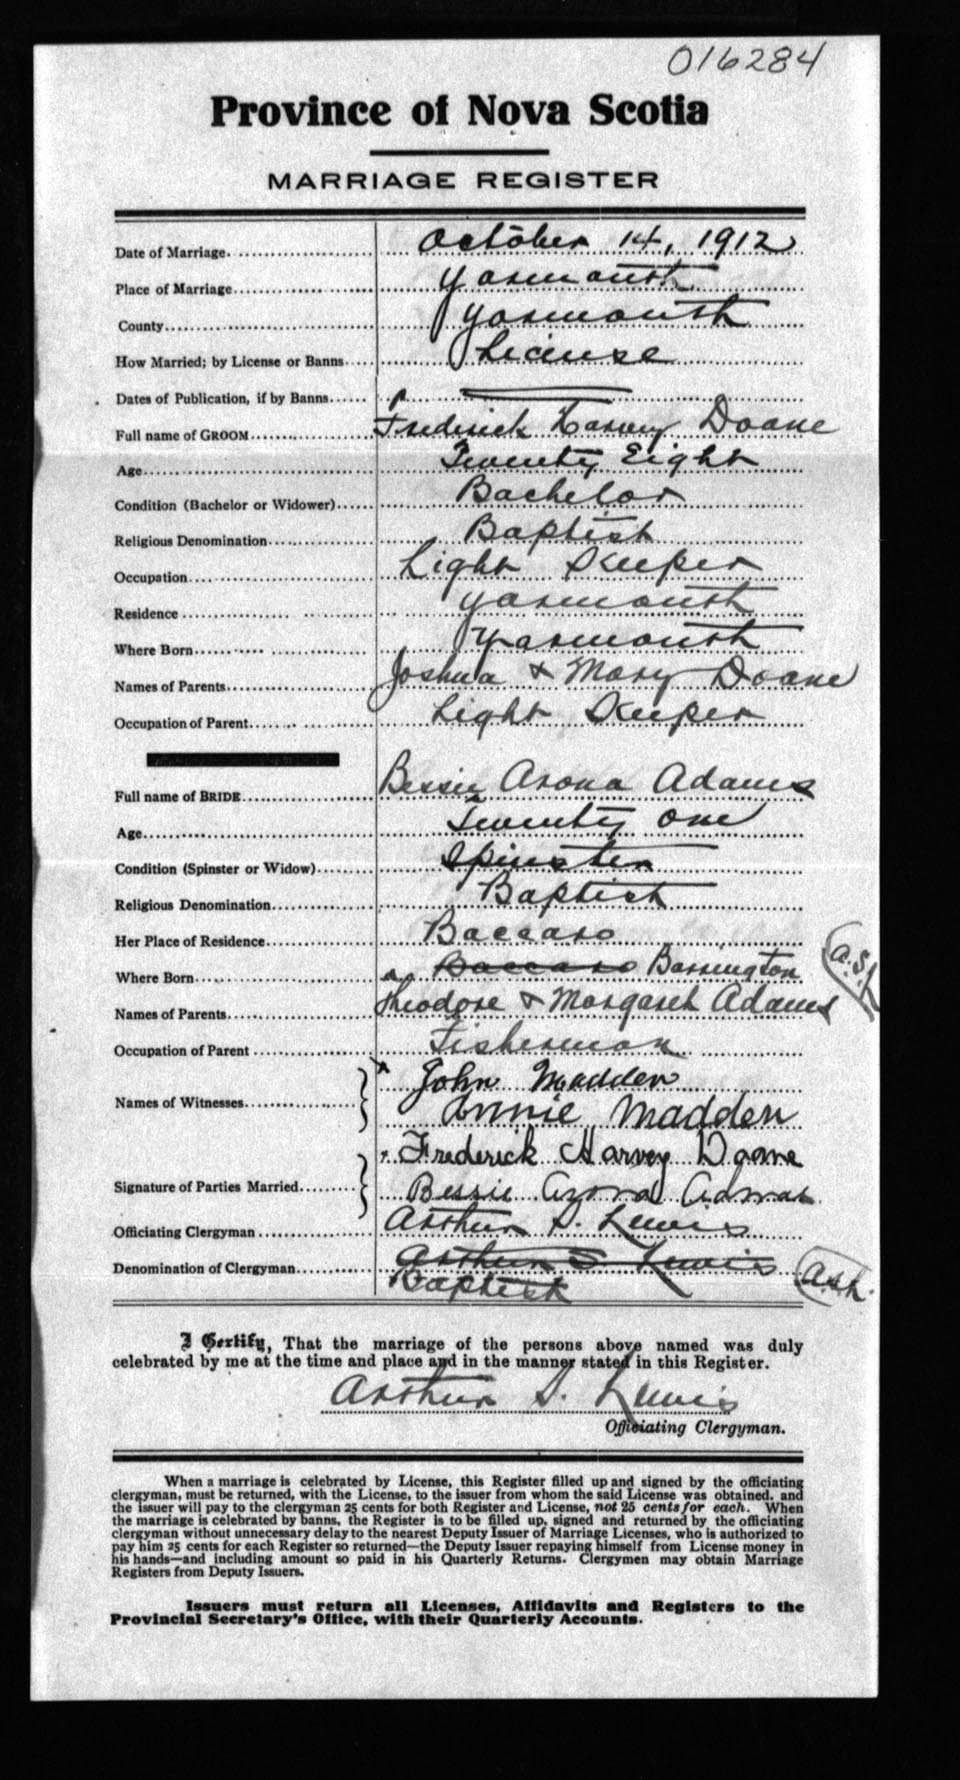 016284
Province of Nova Scotia
MARRIAGE REGISTER
Date of Marriage October 14, 1912
Place of Marriage Yarmouth
County Yarmouth
How Married; by License or Banns License
Dates of Publication, if by Banns
Full name of GROOM Frederick Harvey Doane
Age Twenty Eight
Condition (Bachelor or Widower) Bachelor
Religious Denomination Baptist
Occupation Light Keeper
Residence Yarmouth
Where Born Yarmouth
Names of Parents Joshua & Mary Doane
Occupation of Parent Light Keeper
Full name of BRIDE Bessie Arona Adams
Age Twenty one
Condition (Spinster or Widow) Spinster
Religious Denomination Baptist
Her Place of Residence Baccaro
Where Born Baccaro Barrington A.S.L.
Names of Parents Theodore & Margaret Adams
Occupation of Parent Fisherman
Names of Witnesses John Madden
Annie Madden
Signature of Parties Married Frederick Harvey Doane
Bessie Arona Adams
Officiating Clergyman Arthur S. Lewis
Denomination of Clergyman Arthur S Lewis A.S.L.
Baptist
I Certify, That the marriage of the persons above named was duly
celebrated by me at the time and place and in the manner stated in this Register.
Arthur S. Lewis
Officiating Clergyman.
When a marriage is celebrated by License, this Register filled up and signed by the officiating
clergyman, must be returned, with the License, to the issuer from whom the said License was obtained, and
the issuer will pay to the clergyman 25 cents for both Register and License, not 25 cents for each. When
the marriage is celebrated by banns, the Register is to be filled up, signed and returned by the officiating
clergyman without unnecessary delay to the nearest Deputy Issuer of Marriage Licenses, who is authorized to
pay him 25 cents for each Register so returned—the Deputy Issuer repaying himself from License money in
his hands—and including amount so paid in his Quarterly Returns. Clergymen may obtain Marriage
Registers from Deputy Issuers.
Issuers must return all Licenses, Affidavits and Registers to the
Provincial Secretary's Office, with their Quarterly Accounts.